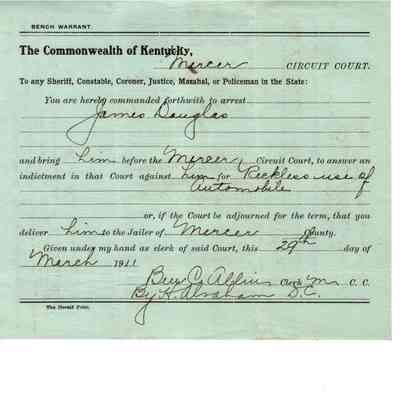 BENCH WARRANT.
The Commonwealth of Kentucky,
Mercer CIRCUIT COURT.
To any Sheriff, Constable, Coroner, Justice, Marshal, or Policeman in the State:
You are hereby commanded forthwith to arrest
James Douglas
and bring him before the Mercer Circuit Court, to answer an
indictment in that Court against him for Reckless use of
automobile
or, if the Court be adjourned for the term, that you
deliver him to the Jailer of Mercer County.
Given under my hand as clerk of said Court, this 29th day of
March 1911
Ben C. Allin Clerk M. C. C.
By H. Abraham D.C.
The Herald Print.